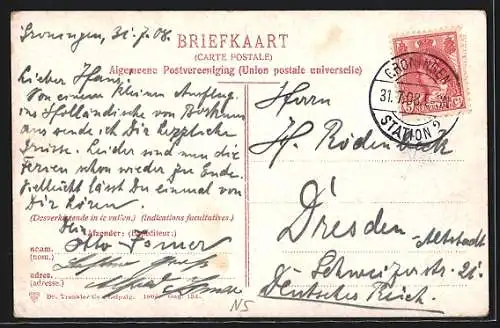 Groningen, 31.7.08.
BRIEFKAART
(CARTE POSTALE)
Algemeene Postvereeniging (Union postale universelle)
Lieber Hans,
Von einem kleinen Ausflug
ins Holländische von Borkum
aus sende ich Dir herzliche
Grüsse. Leider sind nun die
Ferien schon wieder zu Ende.
Vielleicht lässt Du einmal von
Dir hören.
(Desverkiezende in te vullen.) (Indications facultatives.)
Afzender: (Expéditeur:)
NAAM:
(nom.)
ADRES:
(adresse.)
Dr. Trenkler Co., Leipzig. 1906.
NS
GRONINGEN
31.7.08
STATION
Herrn
H. Rodenbeck
Dresden-
Altstadt
Schweizerstr. 21.
Deutsches Reich.